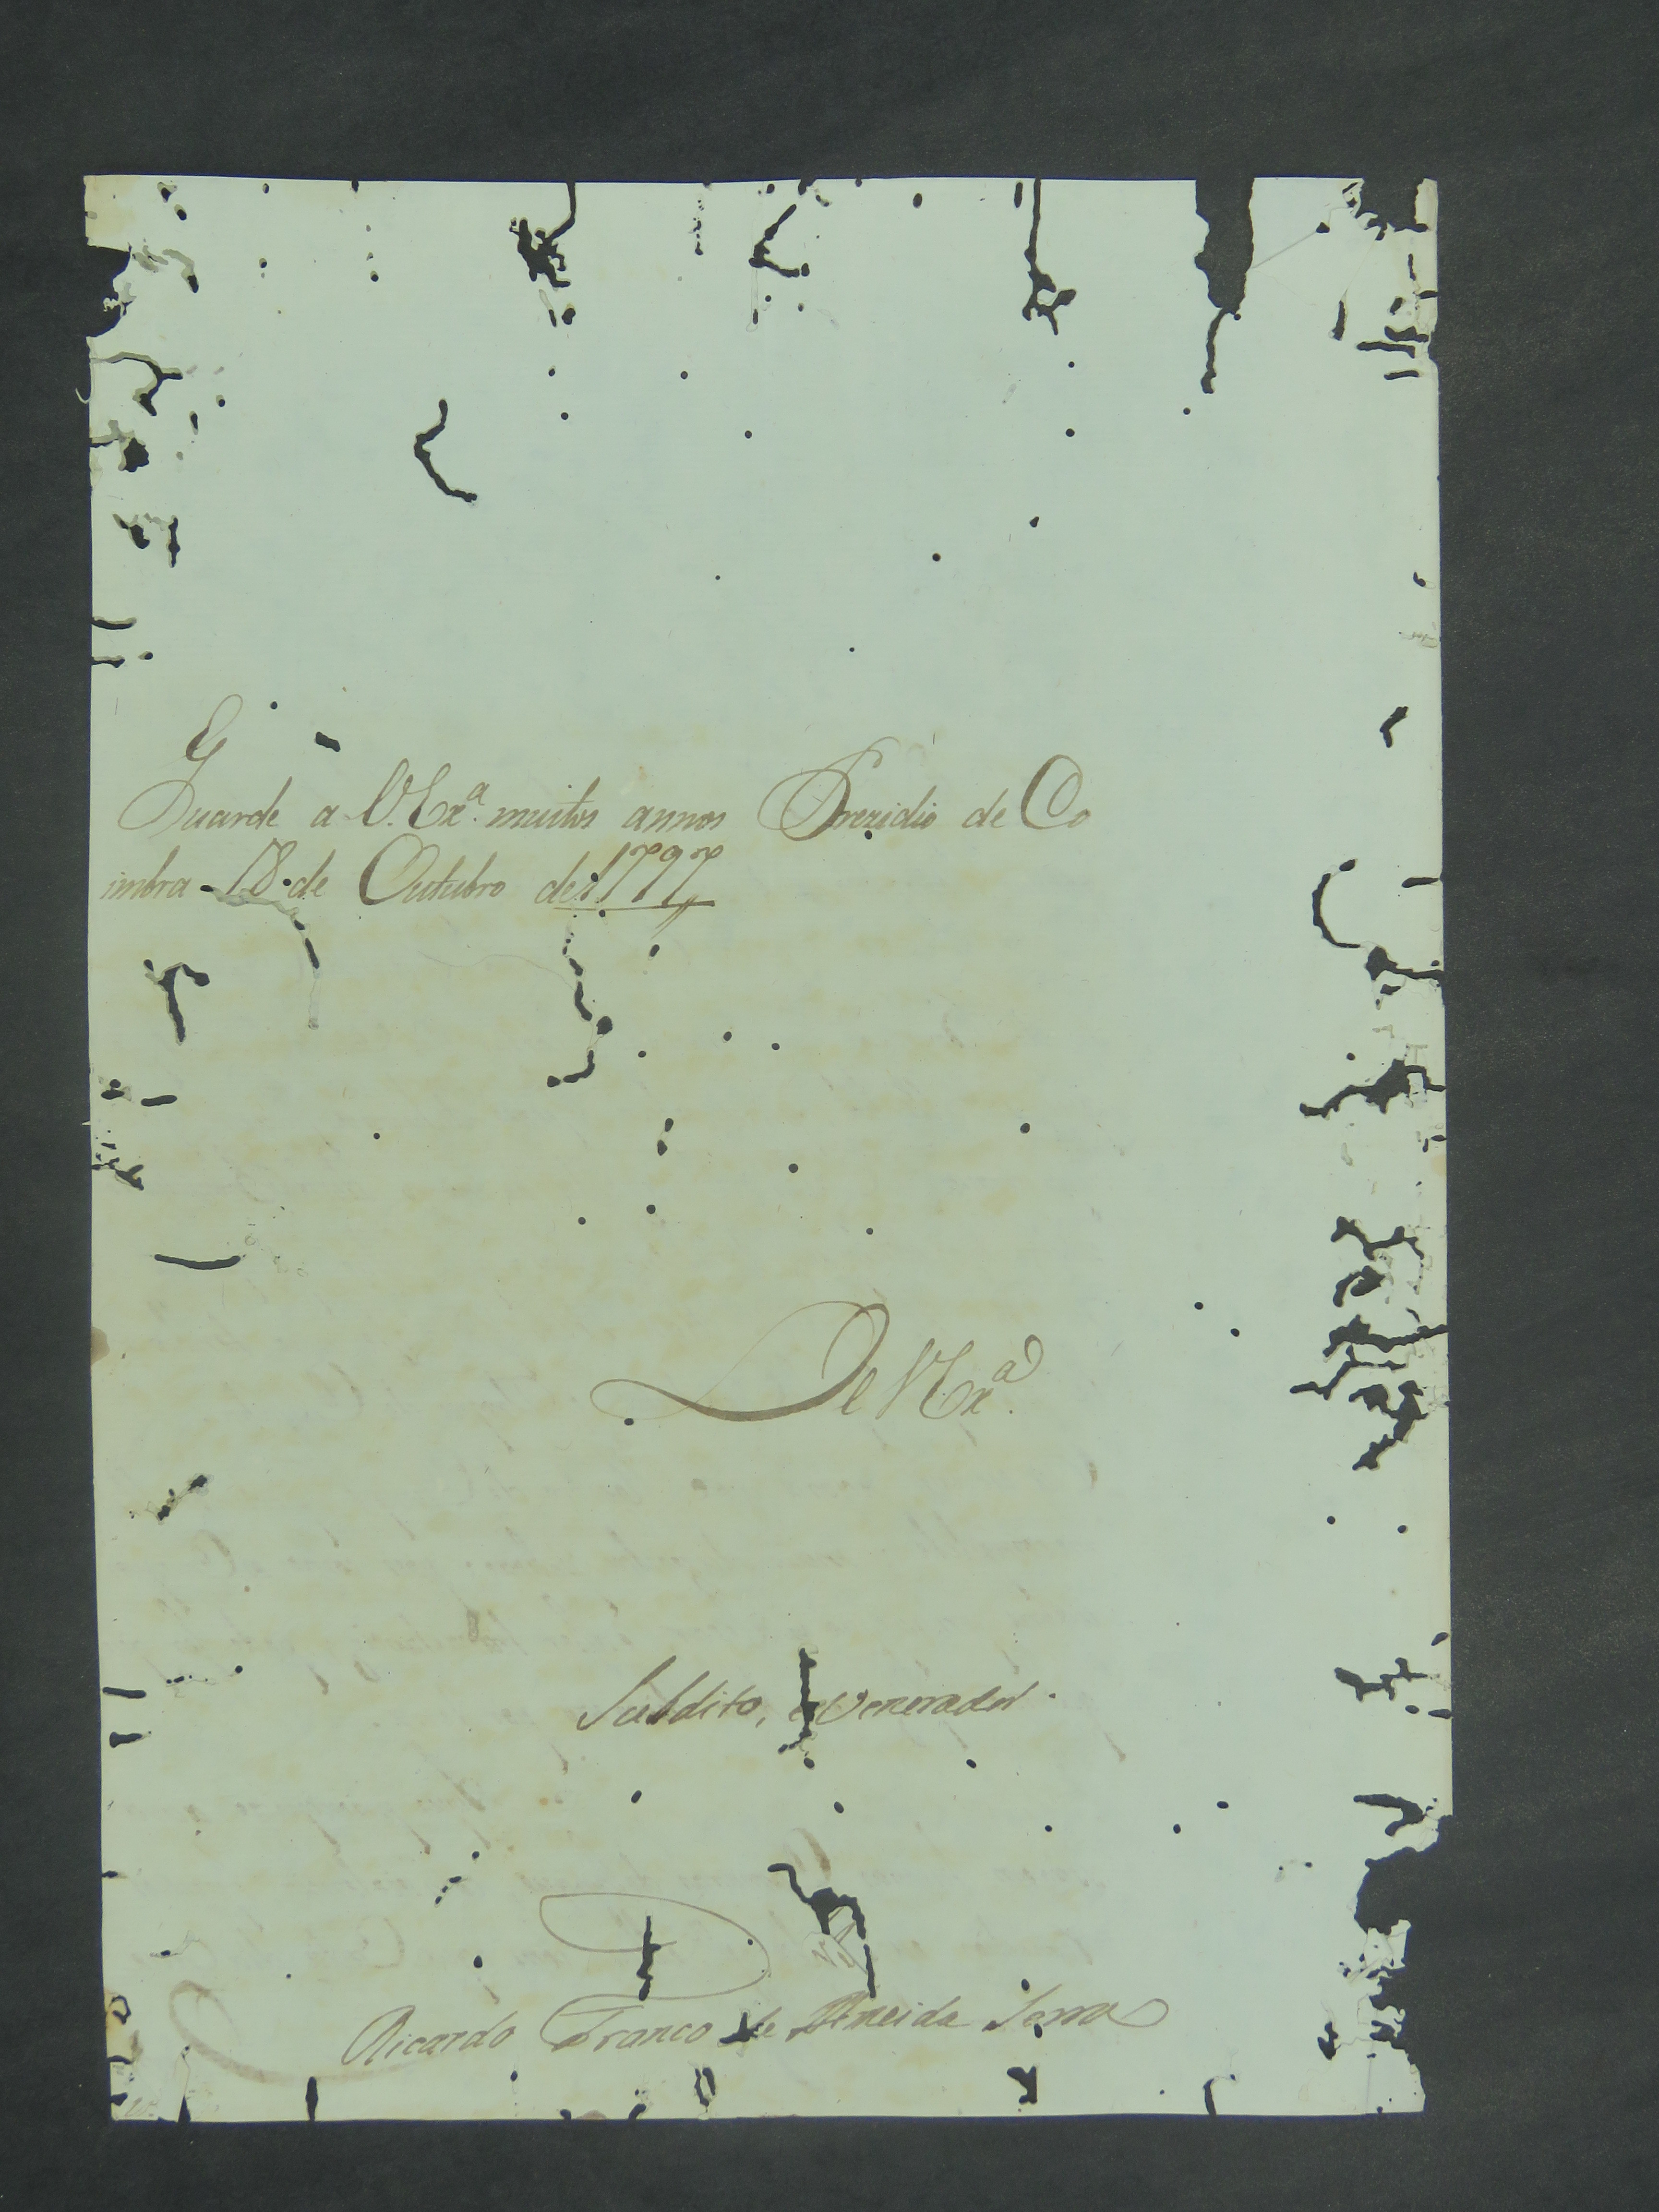 Guarde a V. Exª. muitos annos Prezidio de Co
imbra 18 de Outubro de 1797
De V Exª.
Subdito, e venerador
Ricardo Franco de Almeida Serra